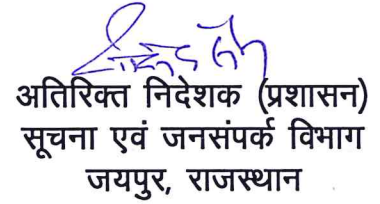 अतिरिक्त निदेशक (प्रशासन)
सूचना एवं जनसंपर्क विभाग
जयपुर, राजस्थान